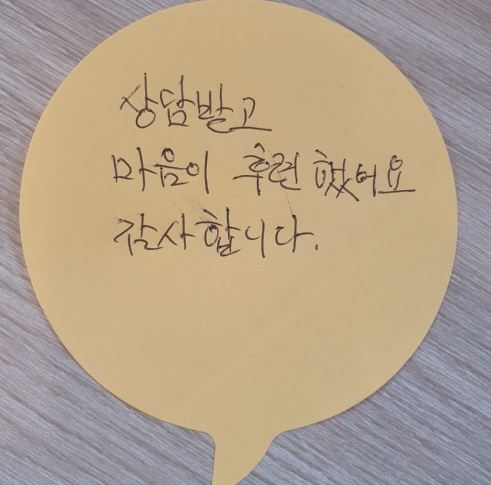 상담받고
마음이 후련 했어요
감사합니다.